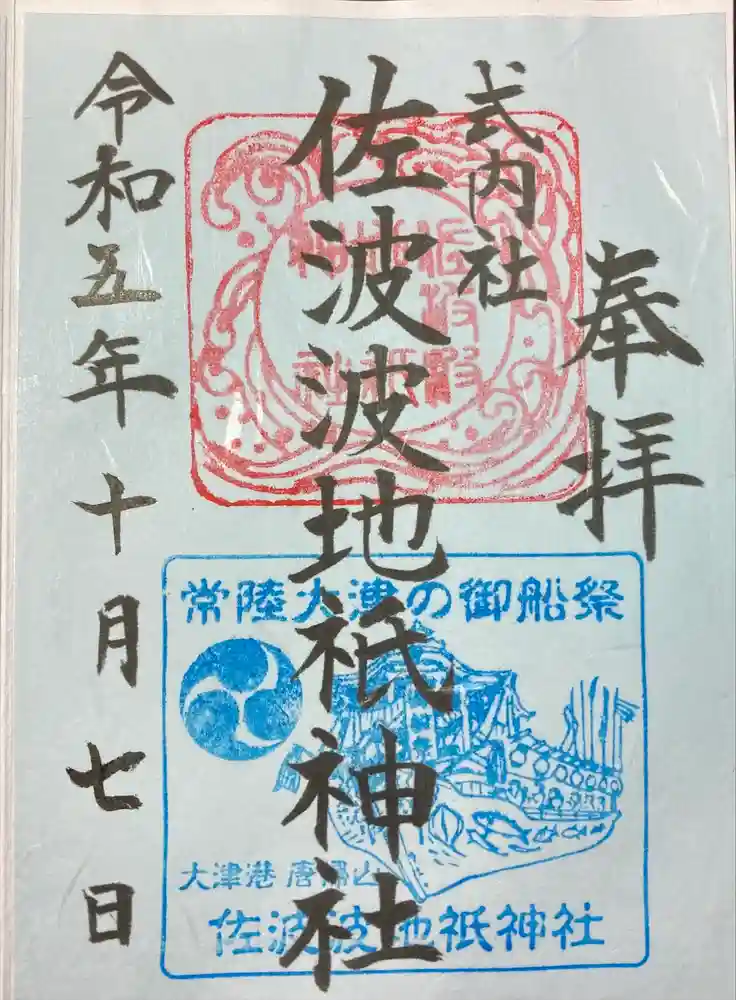 奉拝
式内社
佐波波地祇神社
令和五年十月七日
佐波波
地祇
神社
常陸大津の御船祭
大津港 唐帰山
佐波波地祇神社